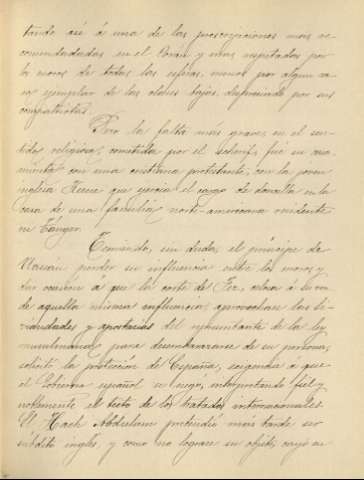 tando así á una de las prescripciones más re-
comendadas en el Coran y mas respetadas por
los moros de todas las esferas, menos por algun ra-
ro ejemplar de las clases bajas, despreciado por sus
compatriotas.
Pero la falta más grave, en el sen-
tido religioso, cometida por el scherif, fué su ca-
samiento con una cristiana protestante, con la joven
inglesa Keene que ejercia el cargo de doncella en la
casa de una familia norte-americana residente
en Tanger.
Temiendo, sin duda, el príncipe de
Uazan perder su influencia entre los moros y
dar ocasion á que la corte de Fez, celosa á la vez
de aquella misma influencia, aprovechase las li-
viandades y apostasías del representante de la ley
musulmana para desembarazarse de su persona,
solicitó la proteccion de España, negando á que
el Gobierno español se negó, interpretando fiel y
noblemente el texto de los tratados internacionales.
El Hach Abdselam pretendió más tarde ser
súbdito inglés, y como no lograse su objeto, cayó en